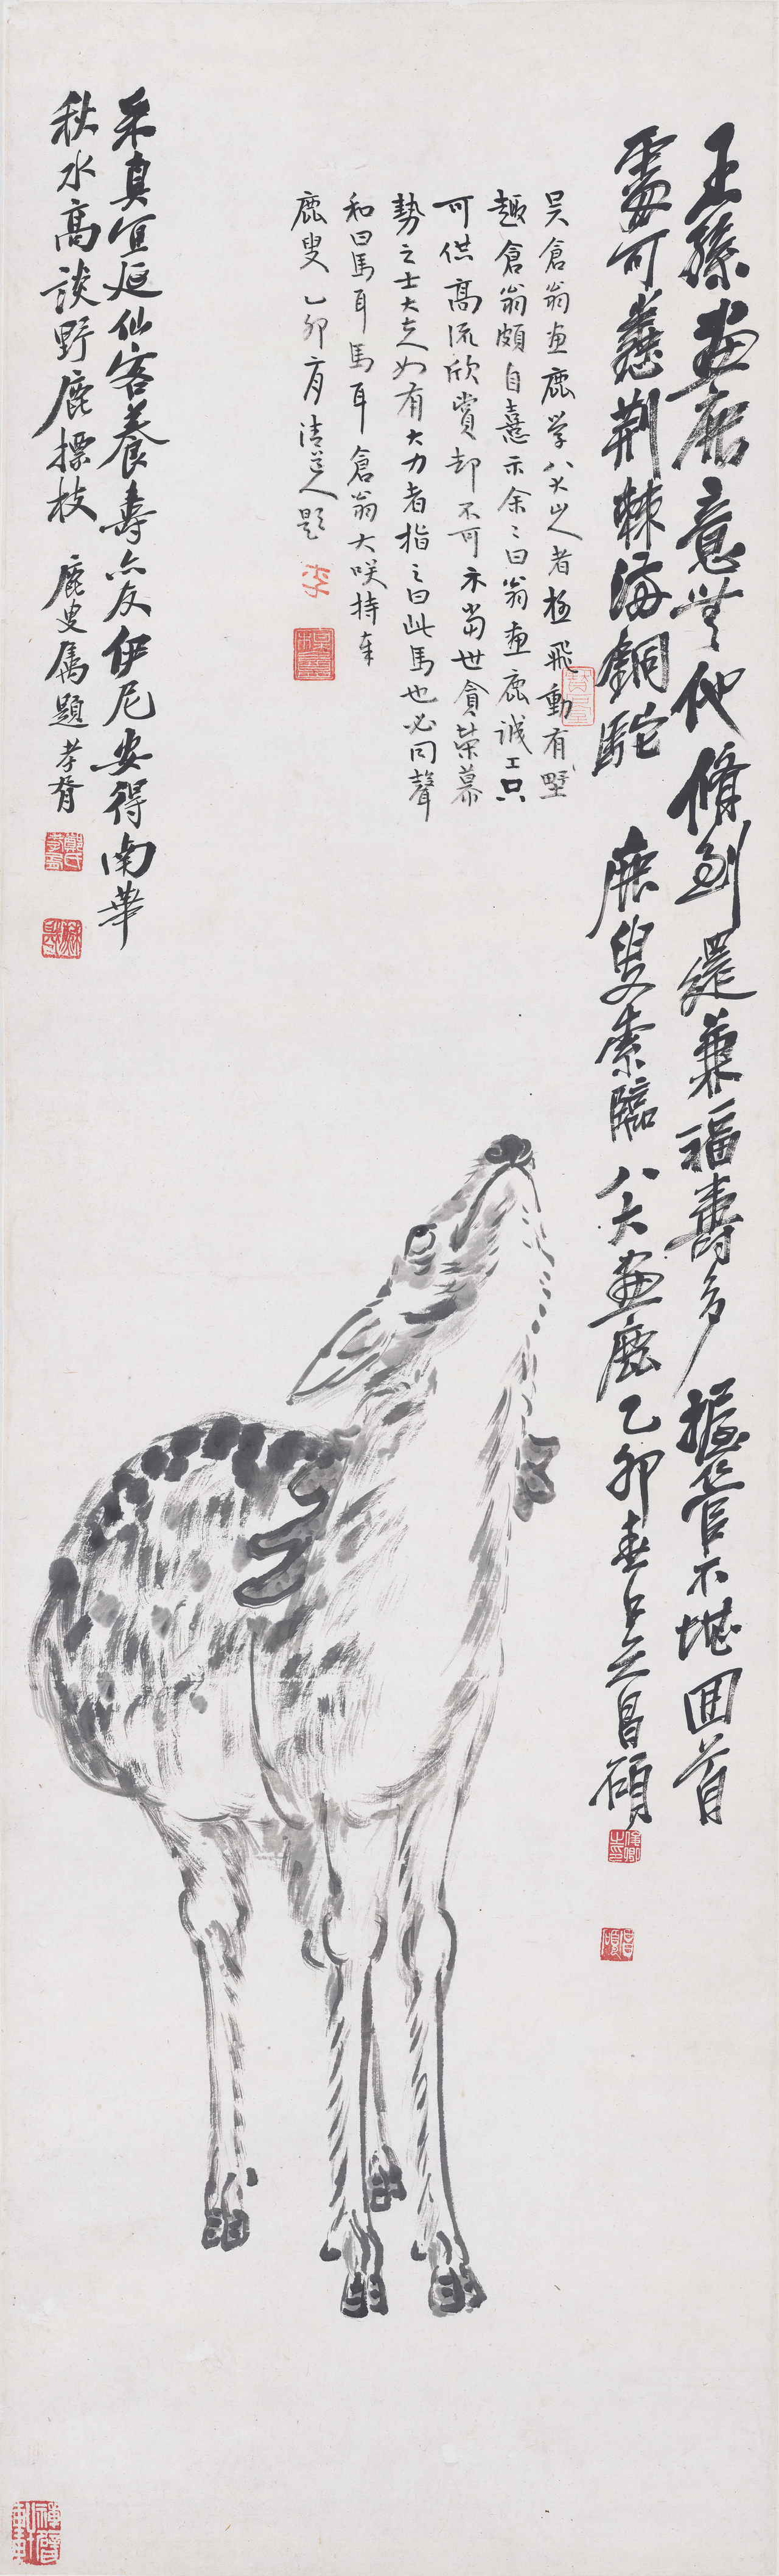 王孫畫鹿意無他脩到還兼福壽多握管不堪回首
處可無荆棘滿銅駝 鹿叟索臨八大畫鹿乙卯春吳昌碩
吳倉翁畫鹿學八大山人者極飛動有野
趣倉翁頗自憙示余〻曰翁畫鹿誠工只
可供高流欣賞却不可示當世貪榮慕
勢之士大夫如有大力者指之曰此馬也必同聲
和曰馬耳馬耳倉翁大咲持奉
鹿叟 乙卯 清道人題
采真宜逐仙客養壽亦友伊尼安得南華
秋水高談野鹿摽枝 鹿叟屬題 孝胥